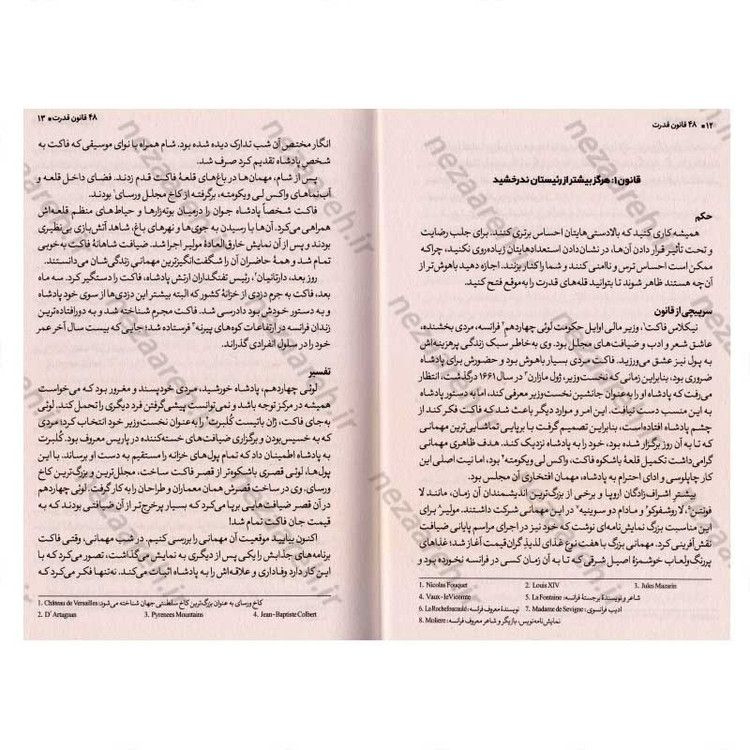 ۱۲ • ۴۸ قانون قدرت
قانون ۱: هرگز بیشتر از رئیستان ندرخشید
حکم
همیشه کاری کنید که بالادستی‌هایتان احساس برتری کنند. برای جلب رضایت
و تحت تأثیر قرار دادن آن‌ها، در نشان‌دادن استعدادهایتان زیاده‌روی نکنید، چراکه
ممکن است احساس ترس و ناامنی کنند و شما را کنار بزنند. اجازه دهید باهوش‌تر از
آن‌چه هستند ظاهر شوند تا بتوانید قله‌های قدرت را به‌موقع فتح کنید.
سرپیچی از قانون
نیکلاس فاکت¹، وزیر مالی اوایل حکومت لوئی چهاردهم² فرانسه، مردی بخشنده،
عاشق شعر و ادب و ضیافت‌های مجلل بود. وی به خاطر سبک زندگی پرهزینه‌اش
به پول نیز عشق می‌ورزید. فاکت مردی بسیار باهوش بود و حضورش برای پادشاه
ضروری بود، بنابراین زمانی که نخست‌وزیر، ژول مازارن³ در سال ۱۶۶۱ درگذشت، انتظار
می‌رفت که پادشاه او را به‌عنوان جانشین نخست‌وزیر معرفی کند، اما به دستور پادشاه
به این منسب دست نیافت. این امر و موارد دیگر باعث شد که فاکت فکر کند از
چشم پادشاه افتاده است، بنابراین تصمیم گرفت با برپایی تماشایی‌ترین مهمانی
که تا به آن روز برگزار شده بود، خود را به پادشاه نزدیک کند. هدف ظاهری مهمانی
گرامی‌داشت تکمیل قلعهٔ باشکوه فاکت، واکس لی ویکومته⁴ بود، اما نیت اصلی این
کار چاپلوسی و ادای احترام به پادشاه، مهمان افتخاری آن مجلس بود.
بیشتر اشراف‌زادگان اروپا و برخی از بزرگ‌ترین اندیشمندان آن زمان، مانند لا
فونتن⁵، لا روشفوکو⁶ و مادام دو سوینیه⁷ در این مهمانی شرکت داشتند. مولیر⁸ برای
این مناسبت بزرگ نمایش‌نامه‌ای نوشت که خود نیز در اجرای مراسم پایانی ضیافت
نقش‌آفرینی کرد. مهمانی بزرگ با هفت نوع غذای لذیذ گران‌قیمت آغاز شد؛ غذاهای
پررنگ‌ولعاب خوشمزهٔ اصیل شرقی که تا به آن زمان کسی در فرانسه نخورده بود و
1. Nicolas Fouquet 2. Louis XIV 3. Jules Mazarin
4. Vaux-leVicomte 5. La Fontaine: شاعر و نویسندهٔ برجستهٔ فرانسه
6. La Rochefoucauld: نویسندهٔ معروف فرانسه 7. Madame de Sevigne: ادیب فرانسوی
8. Moliere: نمایش‌نامه‌نویس، بازیگر و شاعر معروف فرانسه
۴۸ قانون قدرت • ۱۳
انگار مختص آن شب تدارک دیده شده بود. شام همراه با نوای موسیقی که فاکت به
شخص پادشاه تقدیم کرد صرف شد.
پس از شام، مهمان‌ها در باغ‌های قلعهٔ فاکت قدم زدند. فضای داخل قلعه و
آب‌نماهای واکس لی ویکومته، برگرفته از کاخ مجلل ورسای¹ بودند.
فاکت شخصاً پادشاه جوان را درمیان بوته‌زارها و حیاط‌های منظم قلعه‌اش
همراهی می‌کرد. آن‌ها با رسیدن به جوی‌ها و نهرهای باغ، شاهد آتش‌بازی بی‌نظیری
بودند و پس از آن نمایش خارق‌العادهٔ مولیر اجرا شد. ضیافت شاهانهٔ فاکت به‌خوبی
تمام شد و همهٔ حاضران آن را شگفت‌انگیزترین مهمانی زندگی‌شان می‌دانستند.
روز بعد، دارتانیان²، رئیس تفنگداران ارتش پادشاه، فاکت را دستگیر کرد. سه ماه
بعد، فاکت به جرم دزدی از خزانهٔ کشور که البته بیشتر این دزدی‌ها از سوی خود پادشاه
و به دستور خودش بود دادرسی شد. فاکت مجرم شناخته شد و به دورافتاده‌ترین
زندان فرانسه در ارتفاعات کوه‌های پیرنه³ فرستاده شد؛ جایی که بیست سال آخر عمر
خود را در سلول انفرادی گذراند.
تفسیر
لوئی چهاردهم، پادشاه خورشید، مردی خودپسند و مغرور بود که می‌خواست
همیشه در مرکز توجه باشد و نمی‌توانست پیشی‌گرفتن فرد دیگری را تحمل کند. لوئی
به‌جای فاکت، ژان باتیست کُلبرت⁴ را به‌عنوان نخست‌وزیر خود انتخاب کرد؛ مردی
که به خسیس‌بودن و برگزاری ضیافت‌های خسته‌کننده در پاریس معروف بود. کُلبرت
به پادشاه اطمینان داد که تمام پول‌های خزانه را مستقیم به دست او برساند. با این
پول‌ها، لوئی قصری باشکوه‌تر از قصر فاکت ساخت، مجلل‌ترین و بزرگ‌ترین کاخ
ورسای. وی در ساخت قصرش همان معماران و طراحان را به کار گرفت. لوئی چهاردهم
در آن قصر ضیافت‌هایی برپا می‌کرد که بسیار پرخرج‌تر از آن ضیافتی بودند که به
قیمت جان فاکت تمام شد!
اکنون بیایید موقعیت آن مهمانی را بررسی کنیم. در شب مهمانی، وقتی فاکت
برنامه‌های جذابش را یکی پس از دیگری به نمایش می‌گذاشت، تصور می‌کرد که با
این کار دارد وفاداری و علاقه‌اش را به پادشاه اثبات می‌کند. نه‌تنها فکر می‌کرد که
1. Château de Versailles: کاخ ورسای به عنوان بزرگ‌ترین کاخ سلطنتی جهان شناخته می‌شود
2. D'Artagnan 3. Pyrenees Mountains 4. Jean-Baptiste Colbert
nezaareh.ir